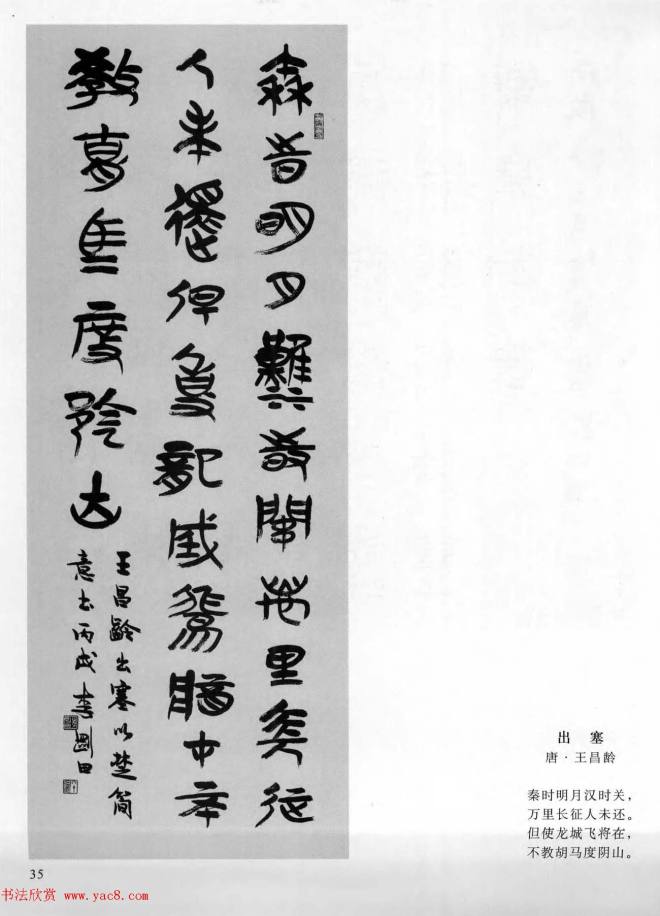 秦時明月漢時關萬里長征
人未還但使龍城飛將在不
教胡馬度陰山
王昌齡出塞以楚简
意书丙戌李剛田
出 塞
唐·王昌龄
秦时明月汉时关，
万里长征人未还。
但使龙城飞将在，
不教胡马度阴山。
35
书法欣赏 www.yac8.com